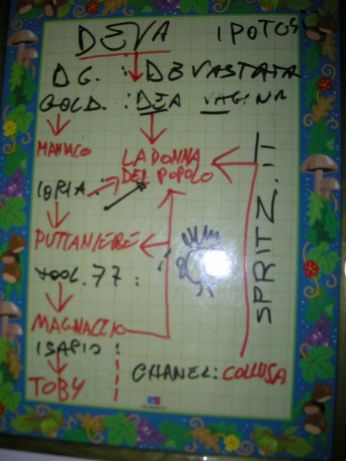 DEVA IPOTOSI
DG. : DEVASTATA
GOLD. : DEA VAGINA
MANIACO
LA DONNA
DEL POPOLO
IBRIA.
PUTTANIERE
TOOL. 77 :
MAGNACCIO
ISAPIO :
TOBY
CHANEL: COLLUSA
SPRITZ. !!